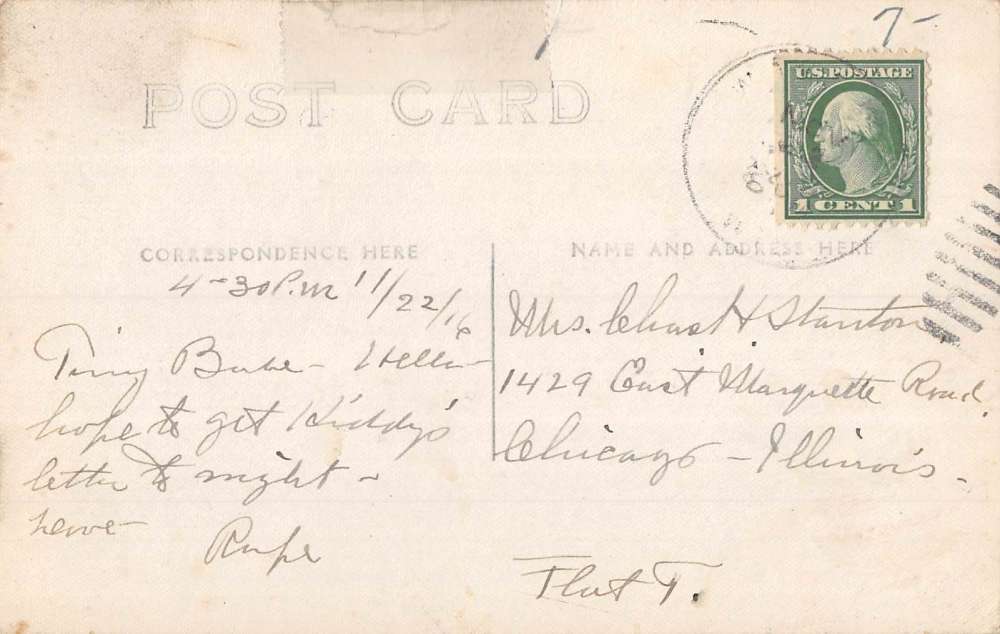 7-
POST CARD
U.S. POSTAGE
1 CENT 1
CORRESPONDENCE HERE
NAME AND ADDRESS HERE
4-30 P.M. 11/22/16
Tiny Babe - Hello -
hope to get Kiddy's
letter to night -
Love -
Rupe
Mrs. Chas H Stanton,
1429 East Marquette Road,
Chicago - Illinois -
Flat T.